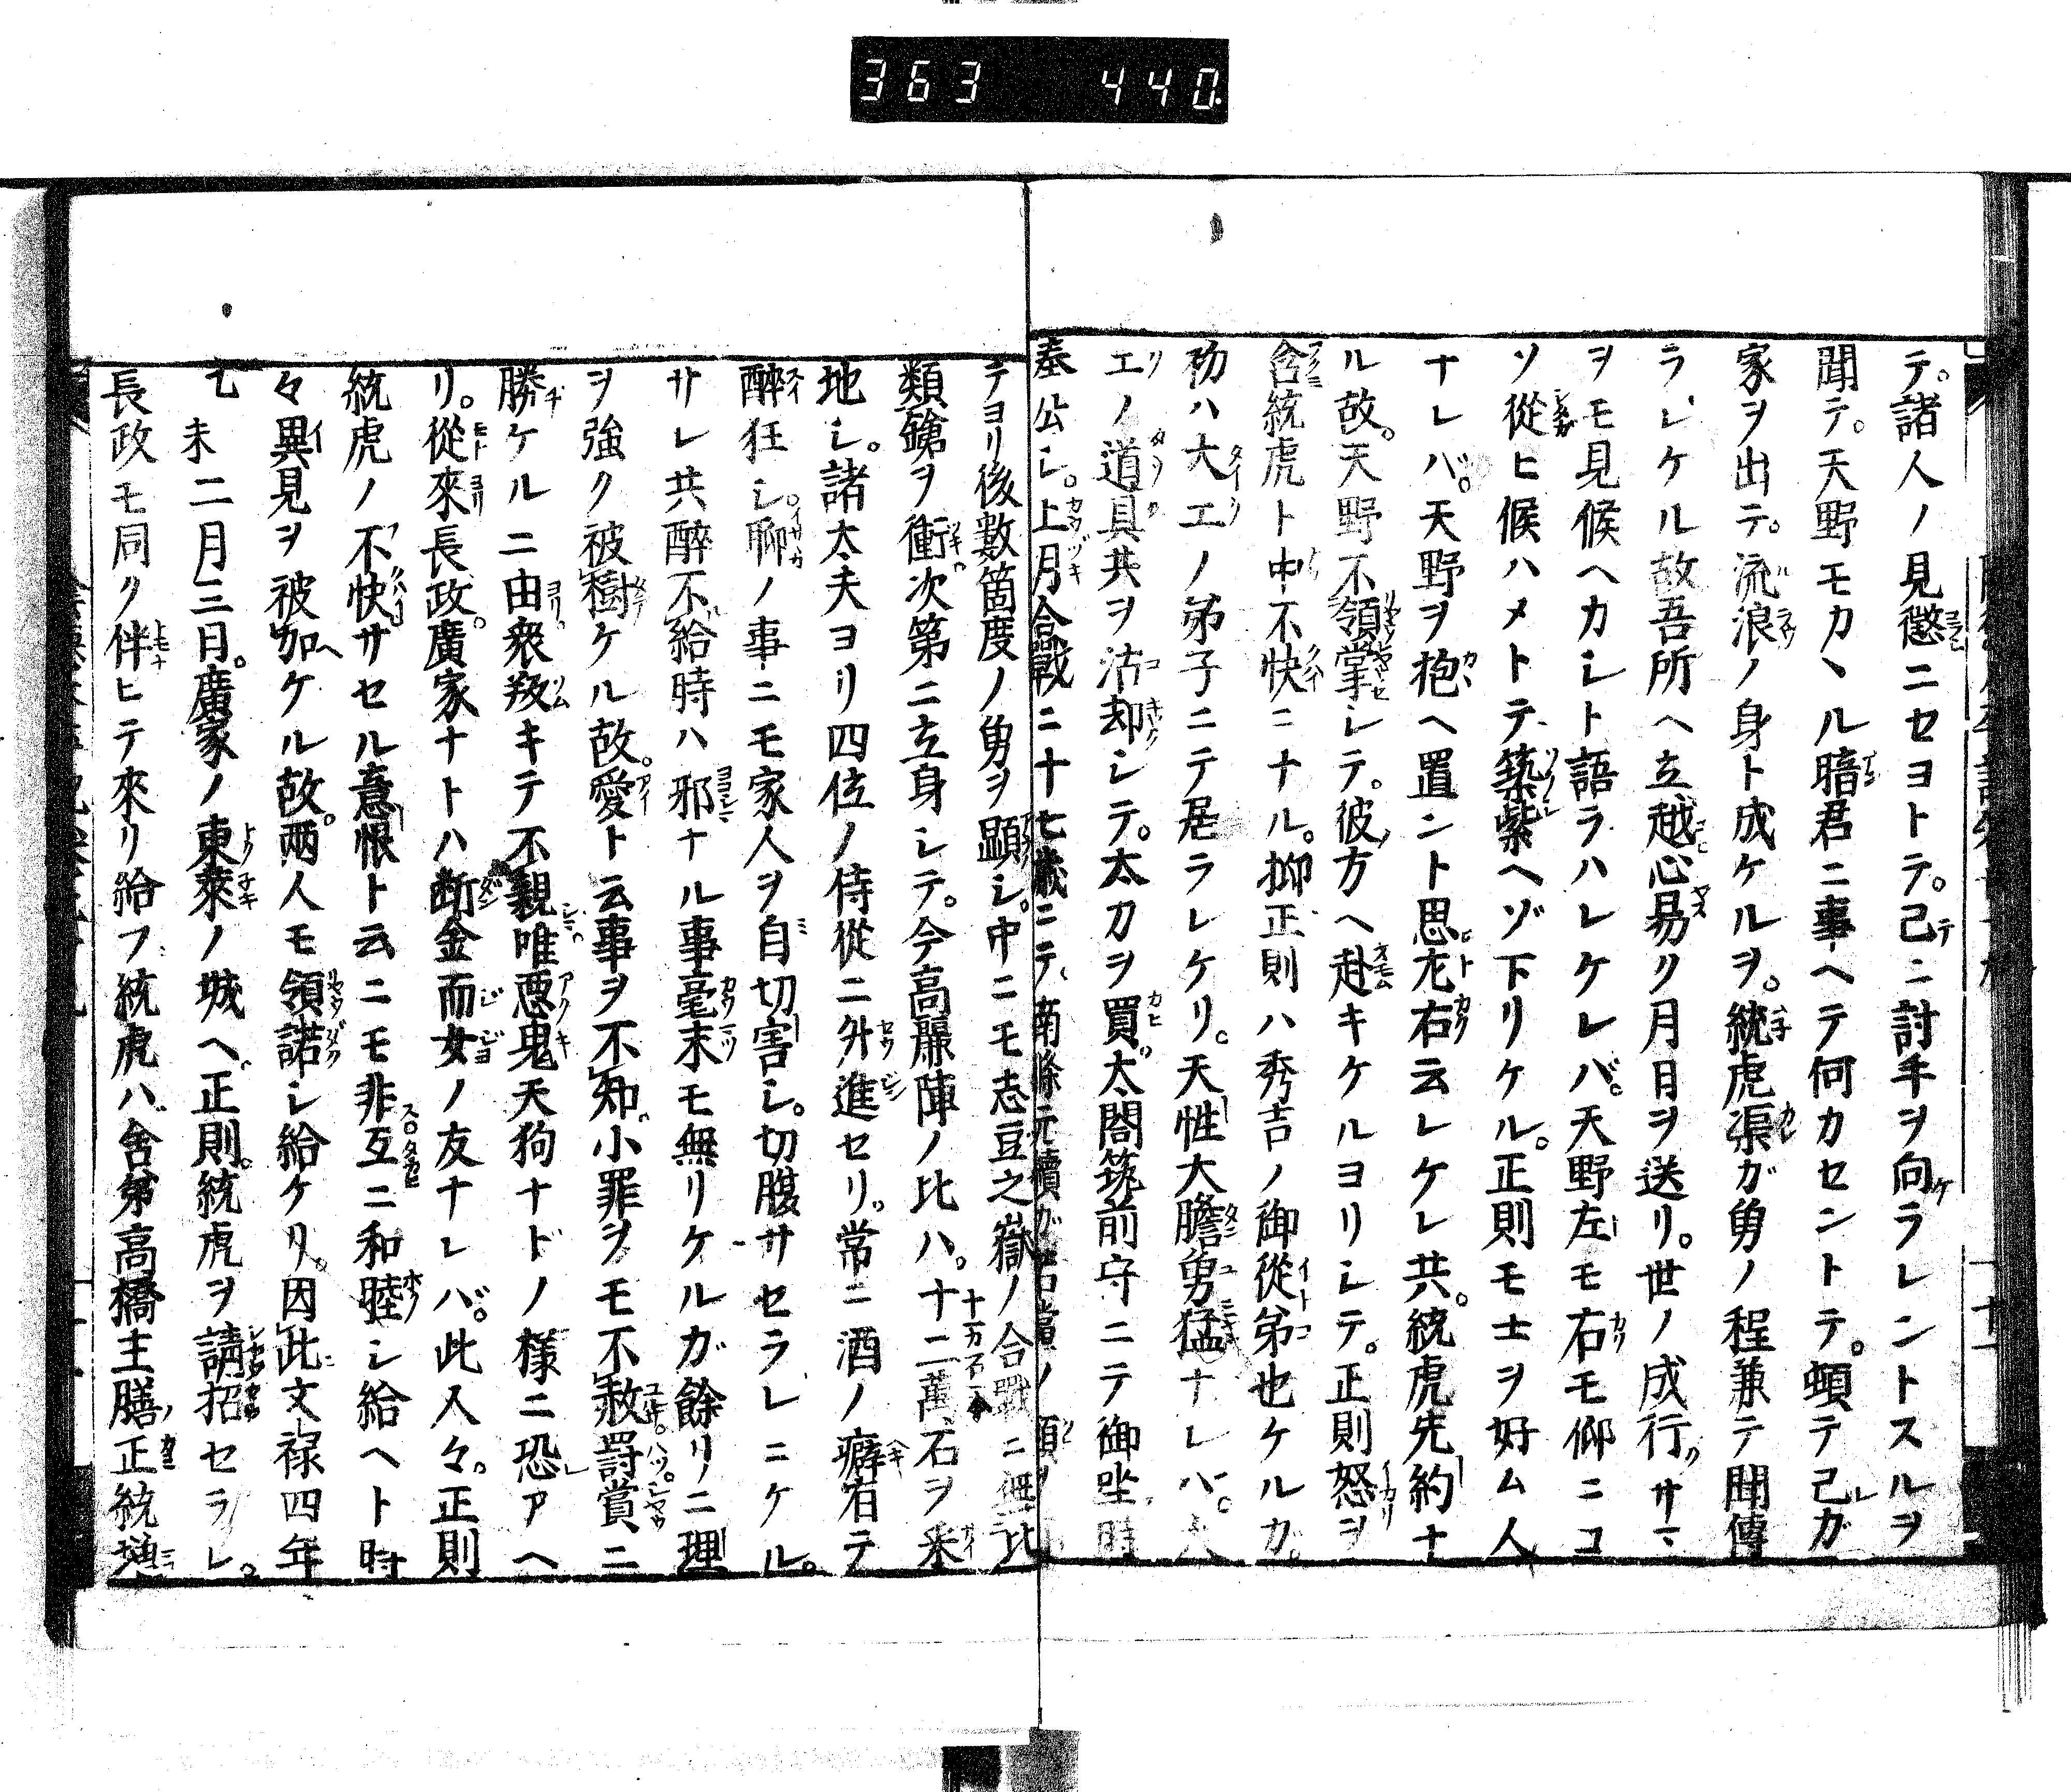 363 440
テ。諸人ノ見懲ニセヨトテ。己ニ討手ヲ向ラレントスルヲ
聞テ。天野モカヽル暗君ニ事ヘテ何カセントテ。頓テ己ガ
家ヲ出テ。流浪ノ身ト成ケルヲ。統虎渠ガ勇ノ程兼テ聞傳
ラレケル故吾所ヘ立越心易ク月日ヲ送リ。世ノ成行サマ
ヲモ見候ヘカシト語ラハレケレバ。天野左モ右モ仰ニコ
ソ從ヒ候ハメトテ築紫ヘゾ下リケル。正則モ士ヲ好ム人
ナレバ。天野ヲ抱ヘ置ント思尤右云レケレ共。統虎先約ナ
ル故。天野不領掌シテ。彼方ヘ赴キケルヨリシテ。正則怒ヲ
含統虎ト中不快ニナル。抑正則ハ秀吉ノ御從弟也ケルカ
初ハ大エノ弟子ニテ居ラレケリ。天性大膽勇猛ナレハ。大
エノ道具共ヲ沽却シテ。太刀ヲ買太閤筑前守ニテ御坐時
奉公シ。上月合戰ニ十七歳ニテ南條元續ガ ノ頭ヲ
テヨリ後數箇度ノ勇ヲ顕シ。中ニモ志豆之嶽ノ合戰ニ無比
類鎗ヲ衝。次第ニ立身シテ。今高麗陣ノ比ハ。十二萬石ヲ釆
地シ。諸太夫ヨリ四位ノ侍從ニ升進セリ。常ニ酒ノ癖有テ
醉狂シ。聊ノ事ニモ家人ヲ自切害シ。切腹サセラレニケル。
サレ共醉不給時ハ邪ナル事毫末モ無リケルガ餘リニ理
ヲ強ク被樹ケル故。愛ト云事ヲ不知。小罪ヲモ不赦。罰賞ニ
勝ケルニ由。衆叛キテ不親唯悪鬼天狗ナドノ樣ニ恐アヘ
リ。從來長政。廣家ナトハ断金而女ノ友ナレバ。此人々。正則
統虎ノ不快サセル意恨ト云ニモ非互ニ和睦シ給ヘト時
々異見ヲ被加ケル故。兩人モ領諾シ給ケリ。因此文禄四年
乇未二月三日。廣家ノ東莱ノ城ヘ。正則。統虎ヲ請招セラレ。
長政モ同ク伴ヒテ來リ給フ統虎ハ舎弟高橋主膳正統増